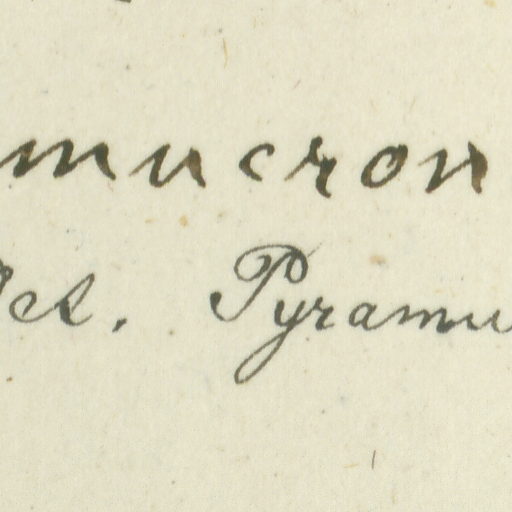 mucron
Pyramu